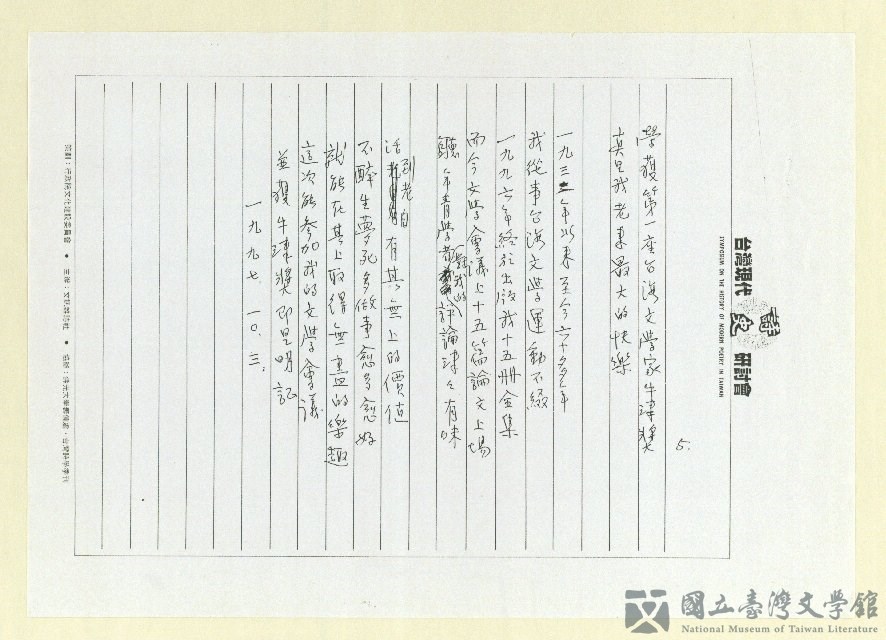 台灣現代詩史研討會
SYMPOSIUM ON THE HISTORY OF MODERN POETRY IN TAIWAN
5.
榮獲第一座台灣文學家牛津獎
真是我老來最大的快樂
一九三二年以來至今六十多年
我從事台灣文學運動不綴
一九九六年終於出版我十五冊全集
而今文學會議上十五篇論文上場
聽年青學者評論津々有味
對我的
活到老自有其無上的價值
不醉生夢死多做事愈多愈好
就能在其上取得無盡的樂趣
這次能參加我的文學會議
並獲牛津獎即是明記
一九九七.一〇.三.
策劃：行政院文化建設委員會 ● 主辦：文訊雜誌社 ● 協辦：
國立臺灣文學館
National Museum of Taiwan Literature